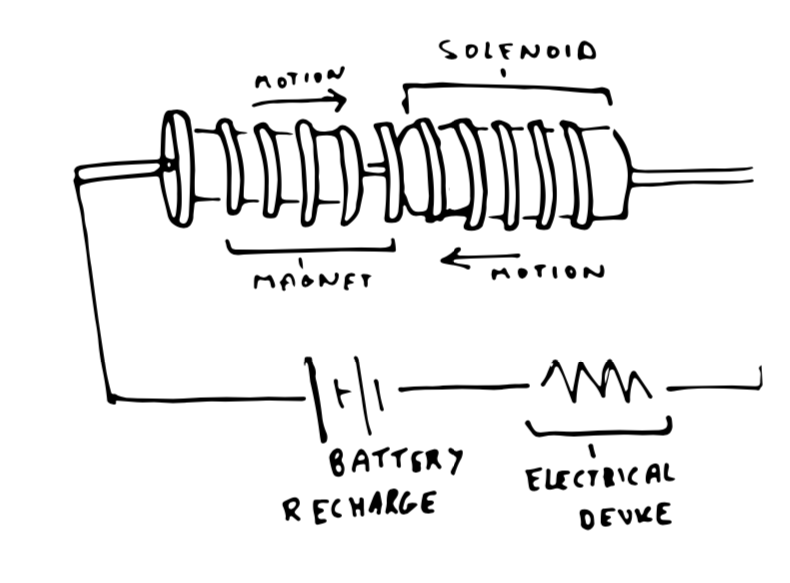 SOLENOID
MOTION
MAGNET
MOTION
BATTERY
RECHARGE
ELECTRICAL
DEVICE